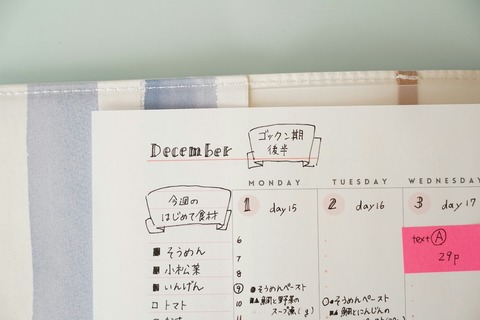 December
ゴックン期
後半
MONDAY TUESDAY WEDNESDAY
今週の
はじめて食材
1 day 15
2 day 16
3 day 17
text Ⓐ
29p
そうめん
小松菜
いんげん
トマト
6
7
8
9
10
11
そうめんペースト
鯛と野菜の
スープ煮(g)
そうめんペースト
鯛とにんじんの